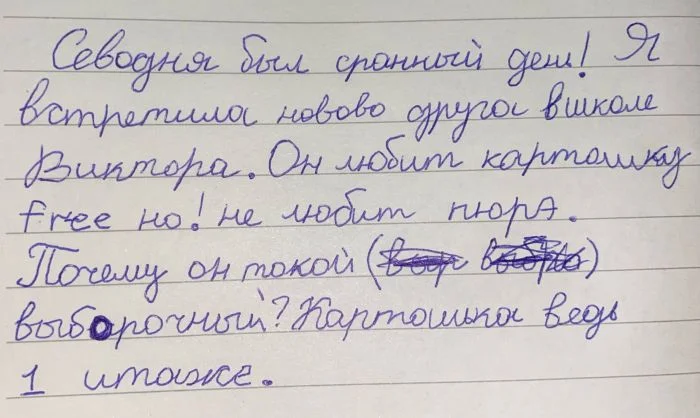 Севодня был сранный ден! Я
встретила нового друга вшколе
Виктора. Он любит картошку
free но! не любит пюрэ.
Почему он токой (
)
выборочный? Картошька ведь
1 итаже.